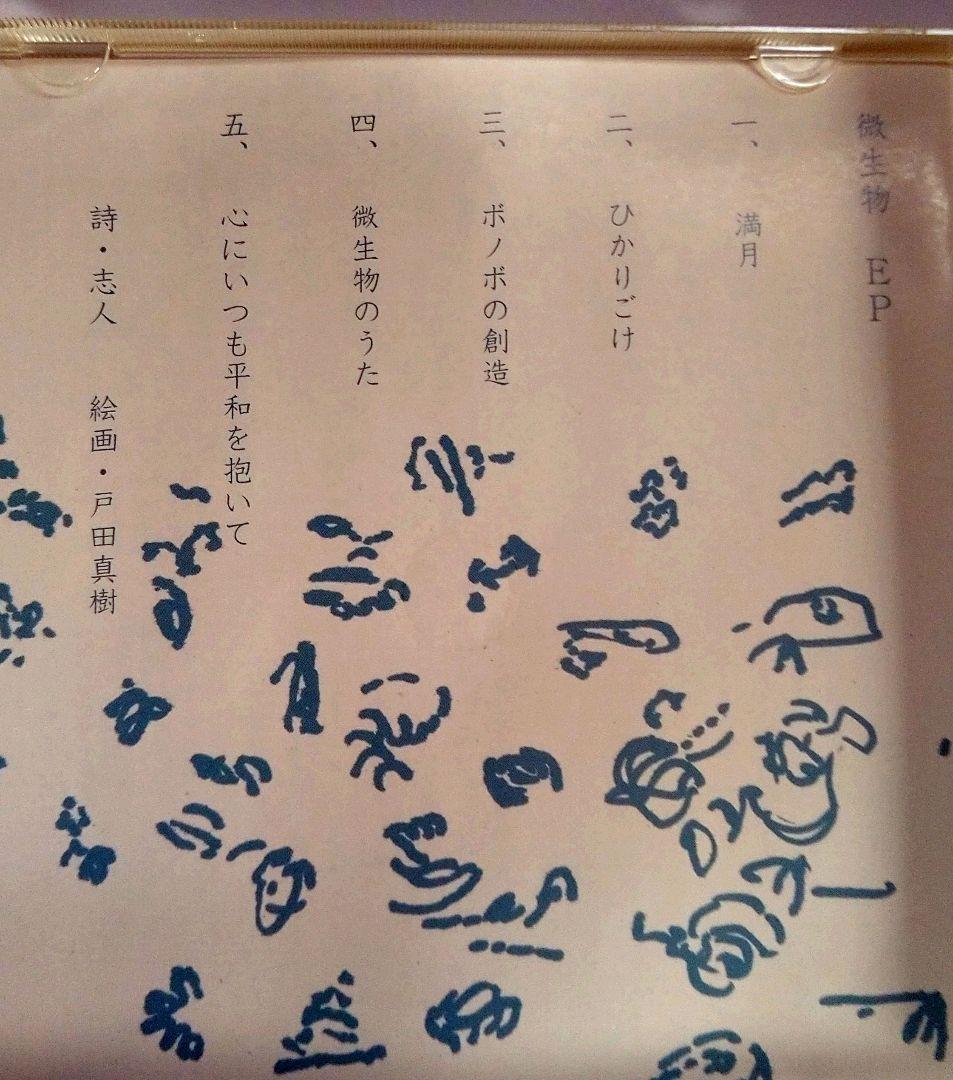 微生物 EP
一、 満月
二、 ひかりごけ
三、 ボノボの創造
四、 微生物のうた
五、 心にいつも平和を抱いて
詩・志人 絵画・戸田真樹